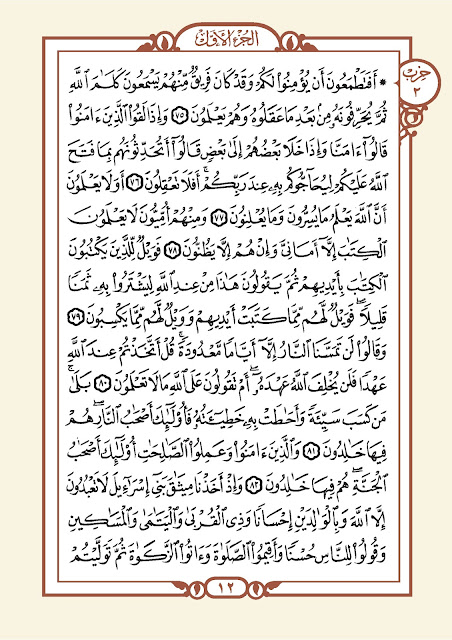 الجزء الأول
حزب
٢
* أَفَتَطْمَعُونَ أَن يُؤْمِنُوا۟ لَكُمْ وَقَدْ كَانَ فَرِيقٌ مِّنْهُمْ يَسْمَعُونَ كَلَٰمَ ٱللَّهِ
ثُمَّ يُحَرِّفُونَهُۥ مِنۢ بَعْدِ مَا عَقَلُوهُ وَهُمْ يَعْلَمُونَ ٧٥ وَإِذَا لَقُوا۟ ٱلَّذِينَ ءَامَنُوا۟
قَالُوٓا۟ ءَامَنَّا وَإِذَا خَلَا بَعْضُهُمْ إِلَىٰ بَعْضٍ قَالُوٓا۟ أَتُحَدِّثُونَهُم بِمَا فَتَحَ
ٱللَّهُ عَلَيْكُمْ لِيُحَآجُّوكُم بِهِۦ عِندَ رَبِّكُمْ ۚ أَفَلَا تَعْقِلُونَ ٧٦ أَوَلَا يَعْلَمُونَ
أَنَّ ٱللَّهَ يَعْلَمُ مَا يُسِرُّونَ وَمَا يُعْلِنُونَ ٧٧ وَمِنْهُمْ أُمِّيُّونَ لَا يَعْلَمُونَ
ٱلْكِتَٰبَ إِلَّآ أَمَانِىَّ وَإِنْ هُمْ إِلَّا يَظُنُّونَ ٧٨ فَوَيْلٌ لِّلَّذِينَ يَكْتُبُونَ
ٱلْكِتَٰبَ بِأَيْدِيهِمْ ثُمَّ يَقُولُونَ هَٰذَا مِنْ عِندِ ٱللَّهِ لِيَشْتَرُوا۟ بِهِۦ ثَمَنًا
قَلِيلًا ۖ فَوَيْلٌ لَّهُم مِّمَّا كَتَبَتْ أَيْدِيهِمْ وَوَيْلٌ لَّهُم مِّمَّا يَكْسِبُونَ ٧٩
وَقَالُوا۟ لَن تَمَسَّنَا ٱلنَّارُ إِلَّآ أَيَّامًا مَّعْدُودَةً ۚ قُلْ أَتَّخَذْتُمْ عِندَ ٱللَّهِ
عَهْدًا فَلَن يُخْلِفَ ٱللَّهُ عَهْدَهُۥٓ ۖ أَمْ تَقُولُونَ عَلَى ٱللَّهِ مَا لَا تَعْلَمُونَ ٨٠ بَلَىٰ ۚ
مَن كَسَبَ سَيِّئَةً وَأَحَٰطَتْ بِهِۦ خَطِيٓـَٔتُهُۥ فَأُو۟لَٰٓئِكَ أَصْحَٰبُ ٱلنَّارِ ۖ هُمْ
فِيهَا خَٰلِدُونَ ٨١ وَٱلَّذِينَ ءَامَنُوا۟ وَعَمِلُوا۟ ٱلصَّٰلِحَٰتِ أُو۟لَٰٓئِكَ أَصْحَٰبُ
ٱلْجَنَّةِ ۖ هُمْ فِيهَا خَٰلِدُونَ ٨٢ وَإِذْ أَخَذْنَا مِيثَٰقَ بَنِىٓ إِسْرَٰٓءِيلَ لَا تَعْبُدُونَ
إِلَّا ٱللَّهَ وَبِٱلْوَٰلِدَيْنِ إِحْسَانًا وَذِى ٱلْقُرْبَىٰ وَٱلْيَتَٰمَىٰ وَٱلْمَسَٰكِينِ
وَقُولُوا۟ لِلنَّاسِ حُسْنًا وَأَقِيمُوا۟ ٱلصَّلَوٰةَ وَءَاتُوا۟ ٱلزَّكَوٰةَ ثُمَّ تَوَلَّيْتُمْ
١٢